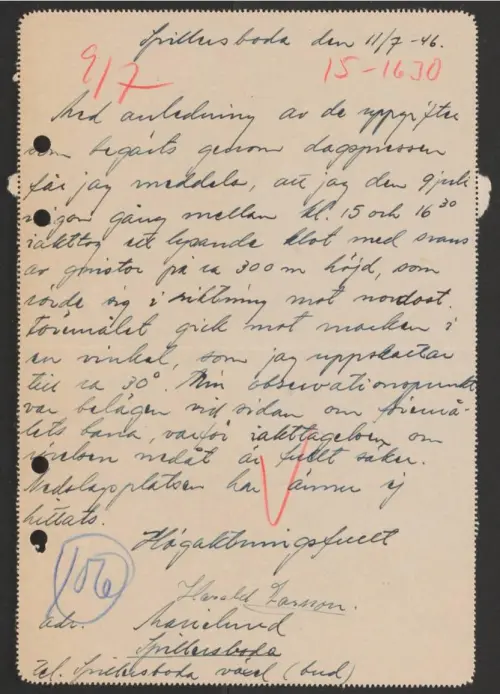 Spillersboda den 11/7 -46.
9/7 15-1630
Med anledning av de uppgifter
som begärts genom dagspressen
får jag meddela, att jag den 9 juli
någon gång mellan kl. 15 och 16³⁰
iakttog ett lysande klot med svans
av gnistor på ca 300 m höjd, som
rörde sig i riktning mot nordost.
Föremålet gick mot marken i
en vinkel, som jag uppskattar
till ca 30°. Min observationspunkt
var belägen vid sidan om föremå-
lets bana, varför iakttagelsen om
rörelsen nedåt är fullt säker.
Nedslagsplatsen har ännu ej
hittats.
Högaktningsfullt
106
Harald
adr. Marielund
Spillersboda
Tel. Spillersboda växel (bud)